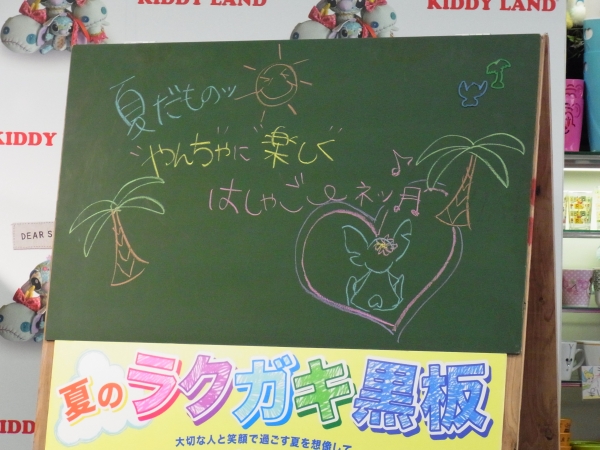 KIDDY LAND
KIDDY LAND
夏だものッ
やんちゃに"楽しく"
はしゃご〜ネッ♪
KIDDY
DEAR S
KIDDY
KIDD
夏のラクガキ黒板
大切な人と笑顔で過ごす夏を想像して